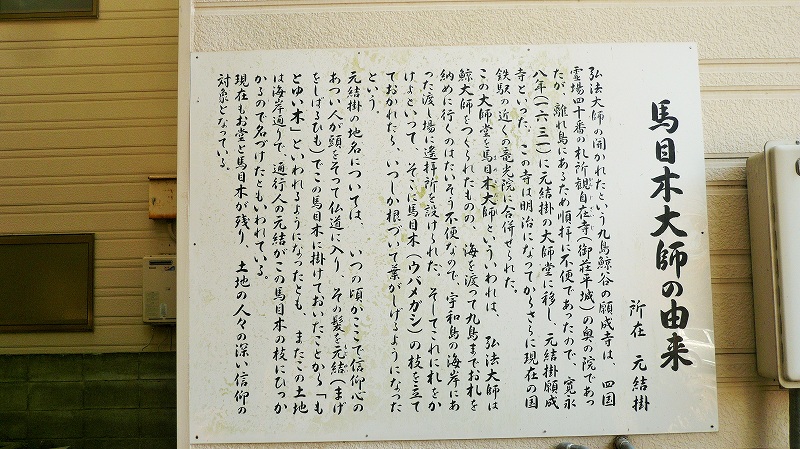 馬目木大師の由来
所在 元結掛
弘法大師の開かれたという九島鯨谷の願成寺は、四国
霊場四十番の札所観自在寺(御荘平城)の奥の院であっ
たが、離れ島にあるため順拝に不便であったので、寛永
八年(一六三一)に元結掛の大師堂に移し、元結掛願成
寺といった。この寺は明治になってからさらに現在の国
鉄駅の近くの竜光院に合併せられた。
この大師堂を馬目木大師といういわれは、弘法大師は
鯨大師をつくられたものの、海を渡て九島までお札を
納めに行くのはたいそう不便なので、宇和島の海岸にあ
った渡し場に遙拝所を設けられた。そしてこれに札をか
けよといって、そこに馬目木(ウバメガシ)の枝を立て
ておかれたら、いつしか根づいて葉がしげるようになった
という。
元結掛の地名については、いつの頃かここで信仰心の
あつい人が頭をそって仏道に入り、その髪を元結(まげ
をしばるひも)でこの馬目木に掛けておいたことから「も
とゆい木」といわれるようになったとも、またこの土地
は海岸通りで、通行人の元結がこの馬目木の枝にひっか
かるので名づけたともいわれている。
現在もお堂と馬目木が残り、土地の人々の深い信仰の
対象となっている。